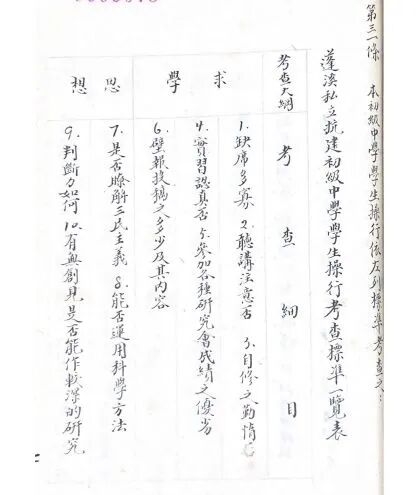 第三一條 本初級中學學生操行依左列標準考查之：
蓬溪私立抗建初級中學學生操行考查標準一覽表
考查大綱 考查細目
求學
1.缺席多寡 2.聽講注意否 3.自修之勤惰
4.實習認真否 5.參加各種研究會成績之優劣
6.壁報投稿之多少及其內容
思想
7.是否瞭解三民主義 8.能否運用科學方法
9.判斷力如何 10.有無創見是否能作較深的研究